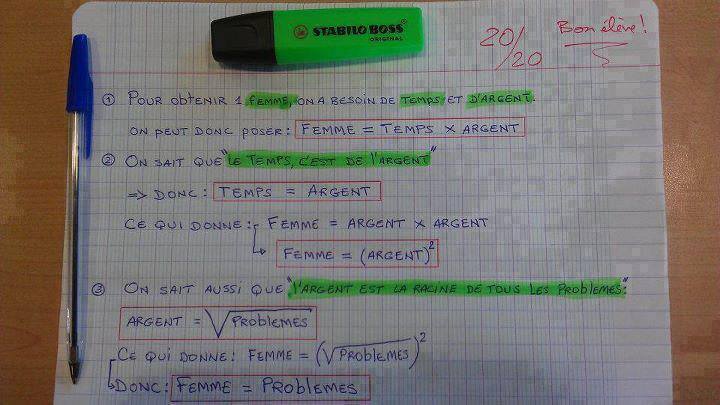 STABILO BOSS
ORIGINAL
20/20
Bon élève!
① POUR OBTENIR 1 FEMME, ON A BESOIN DE TEMPS ET D'ARGENT.
ON PEUT DONC POSER: FEMME = TEMPS X ARGENT
② ON SAIT QUE "LE TEMPS, C'EST DE L'ARGENT"
=> DONC: TEMPS = ARGENT
CE QUI DONNE: FEMME = ARGENT X ARGENT
↳ FEMME = (ARGENT)²
③ ON SAIT AUSSI QUE "L'ARGENT EST LA RACINE DE TOUS LES PROBLEMES":
ARGENT = √PROBLEMES
CE QUI DONNE: FEMME = (√PROBLEMES)²
↳ DONC: FEMME = PROBLEMES